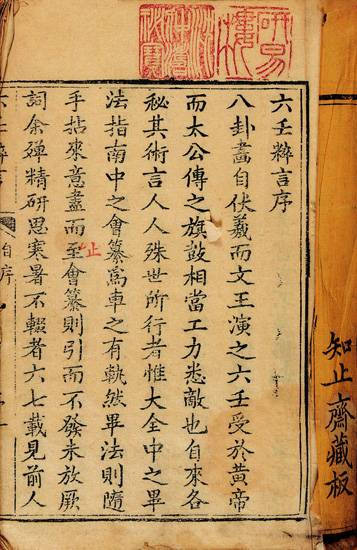 知止齋藏板
研易樓
六壬粹言序
八卦畫自伏羲而文王演之六壬受於黃帝
而太公傳之旗鼓相當工力悉敵也自來各
秘其術言人人殊世所行者惟大全中之畢
法指南中之會纂爲車之有軌然畢法則隨
手拈來意盡而止至會纂則引而不發未放厥
詞余殫精研思寒暑不輟者六七載見前人
自序